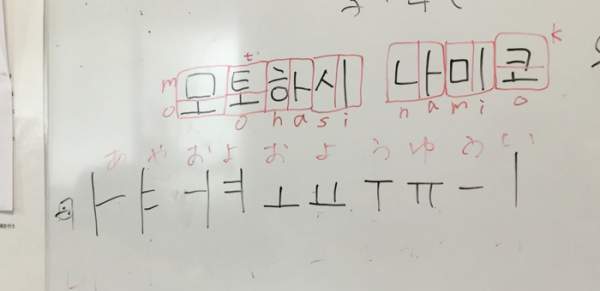 m t k
모토하시 나미코
o o h a s i n a m i o
あ や お よ お よ う ゆ う い
ㅏ ㅑ ㅓ ㅕ ㅗ ㅛ ㅜ ㅠ ㅡ ㅣ